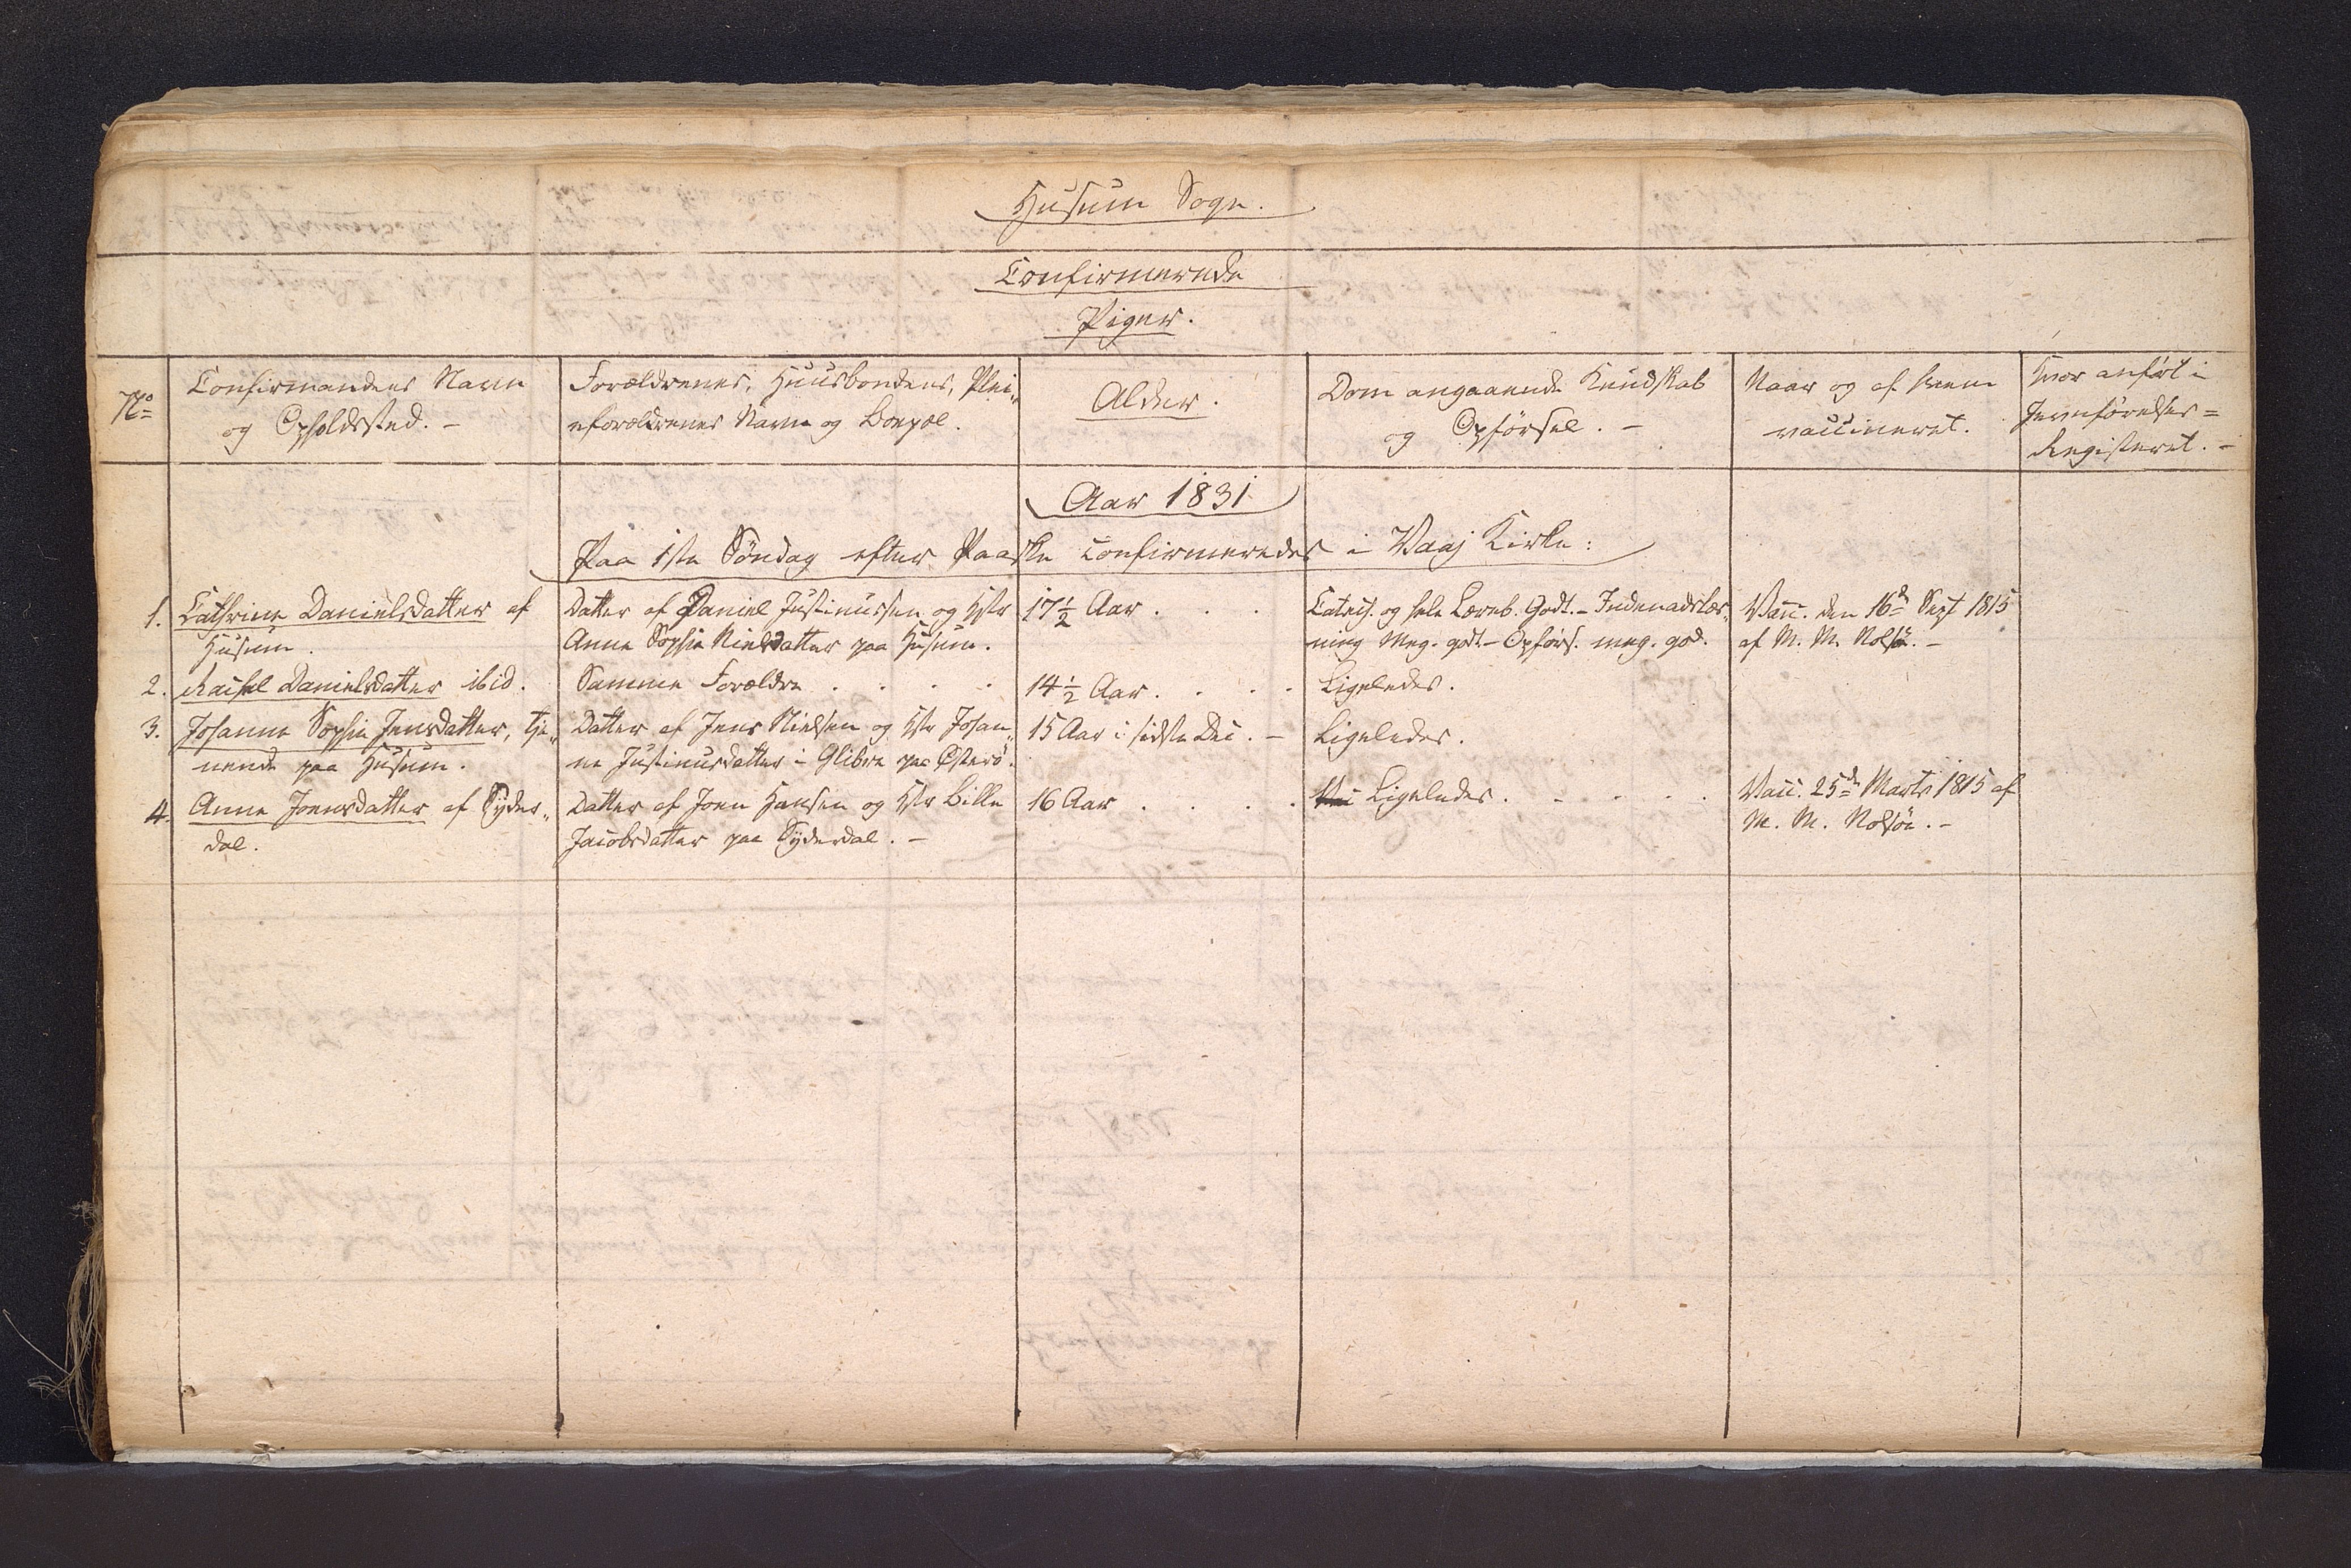 Husum Sogn.
Confirmerede
Piger.
No
Confirmandens Navn
og Opholdssted. -
Forældrenes, Huusbondens, Plei„
eforældrenes Navn og Boepæl.
Alder.
Dom angaaende Kundskab
og Opførsel. -
Naar og af hvem
vaccineret.
Hvor anført i
Jevnførelses=
Registeret. -
Aar 1831
Paa 1ste Söndag efter Paaske confirmeredes i Vaaj Kirke:
1. Cathrine Danielsdatter af
Husum.
Datter af Daniel Justinussen og Hstr
Anne Sophie Nielsdatter paa Husum.
17½ Aar . . .
Catech. og hele Læreb. Godt. - Indenadslæs„
ning Meg. godt - Opførs. meg. god.
Vacc. den 16d Sept 1815
af M. M. Nolsö. -
2. Rachel Danielsdatter ibid.
Samme Forældre . . . .
14½ Aar. . . .
Ligeledes.
3. Johanne Sophie Jensdatter, tje„
nende paa Husum.
Datter af Jens Nielsen og Hstr Johan„
ne Justinusdatter i Glibre paa Österö.
15 Aar i sidste Dec. -
Ligeledes.
4. Anne Joensdatter af Syder„
dal.
Datter af Joen Hansen og Hstr Bille
Jacobsdatter paa Syderdal. -
16 Aar . . . .
Ligeledes. . . . .
Vacc. 25de Marts 1815 af
M. M. Nolsöe. -